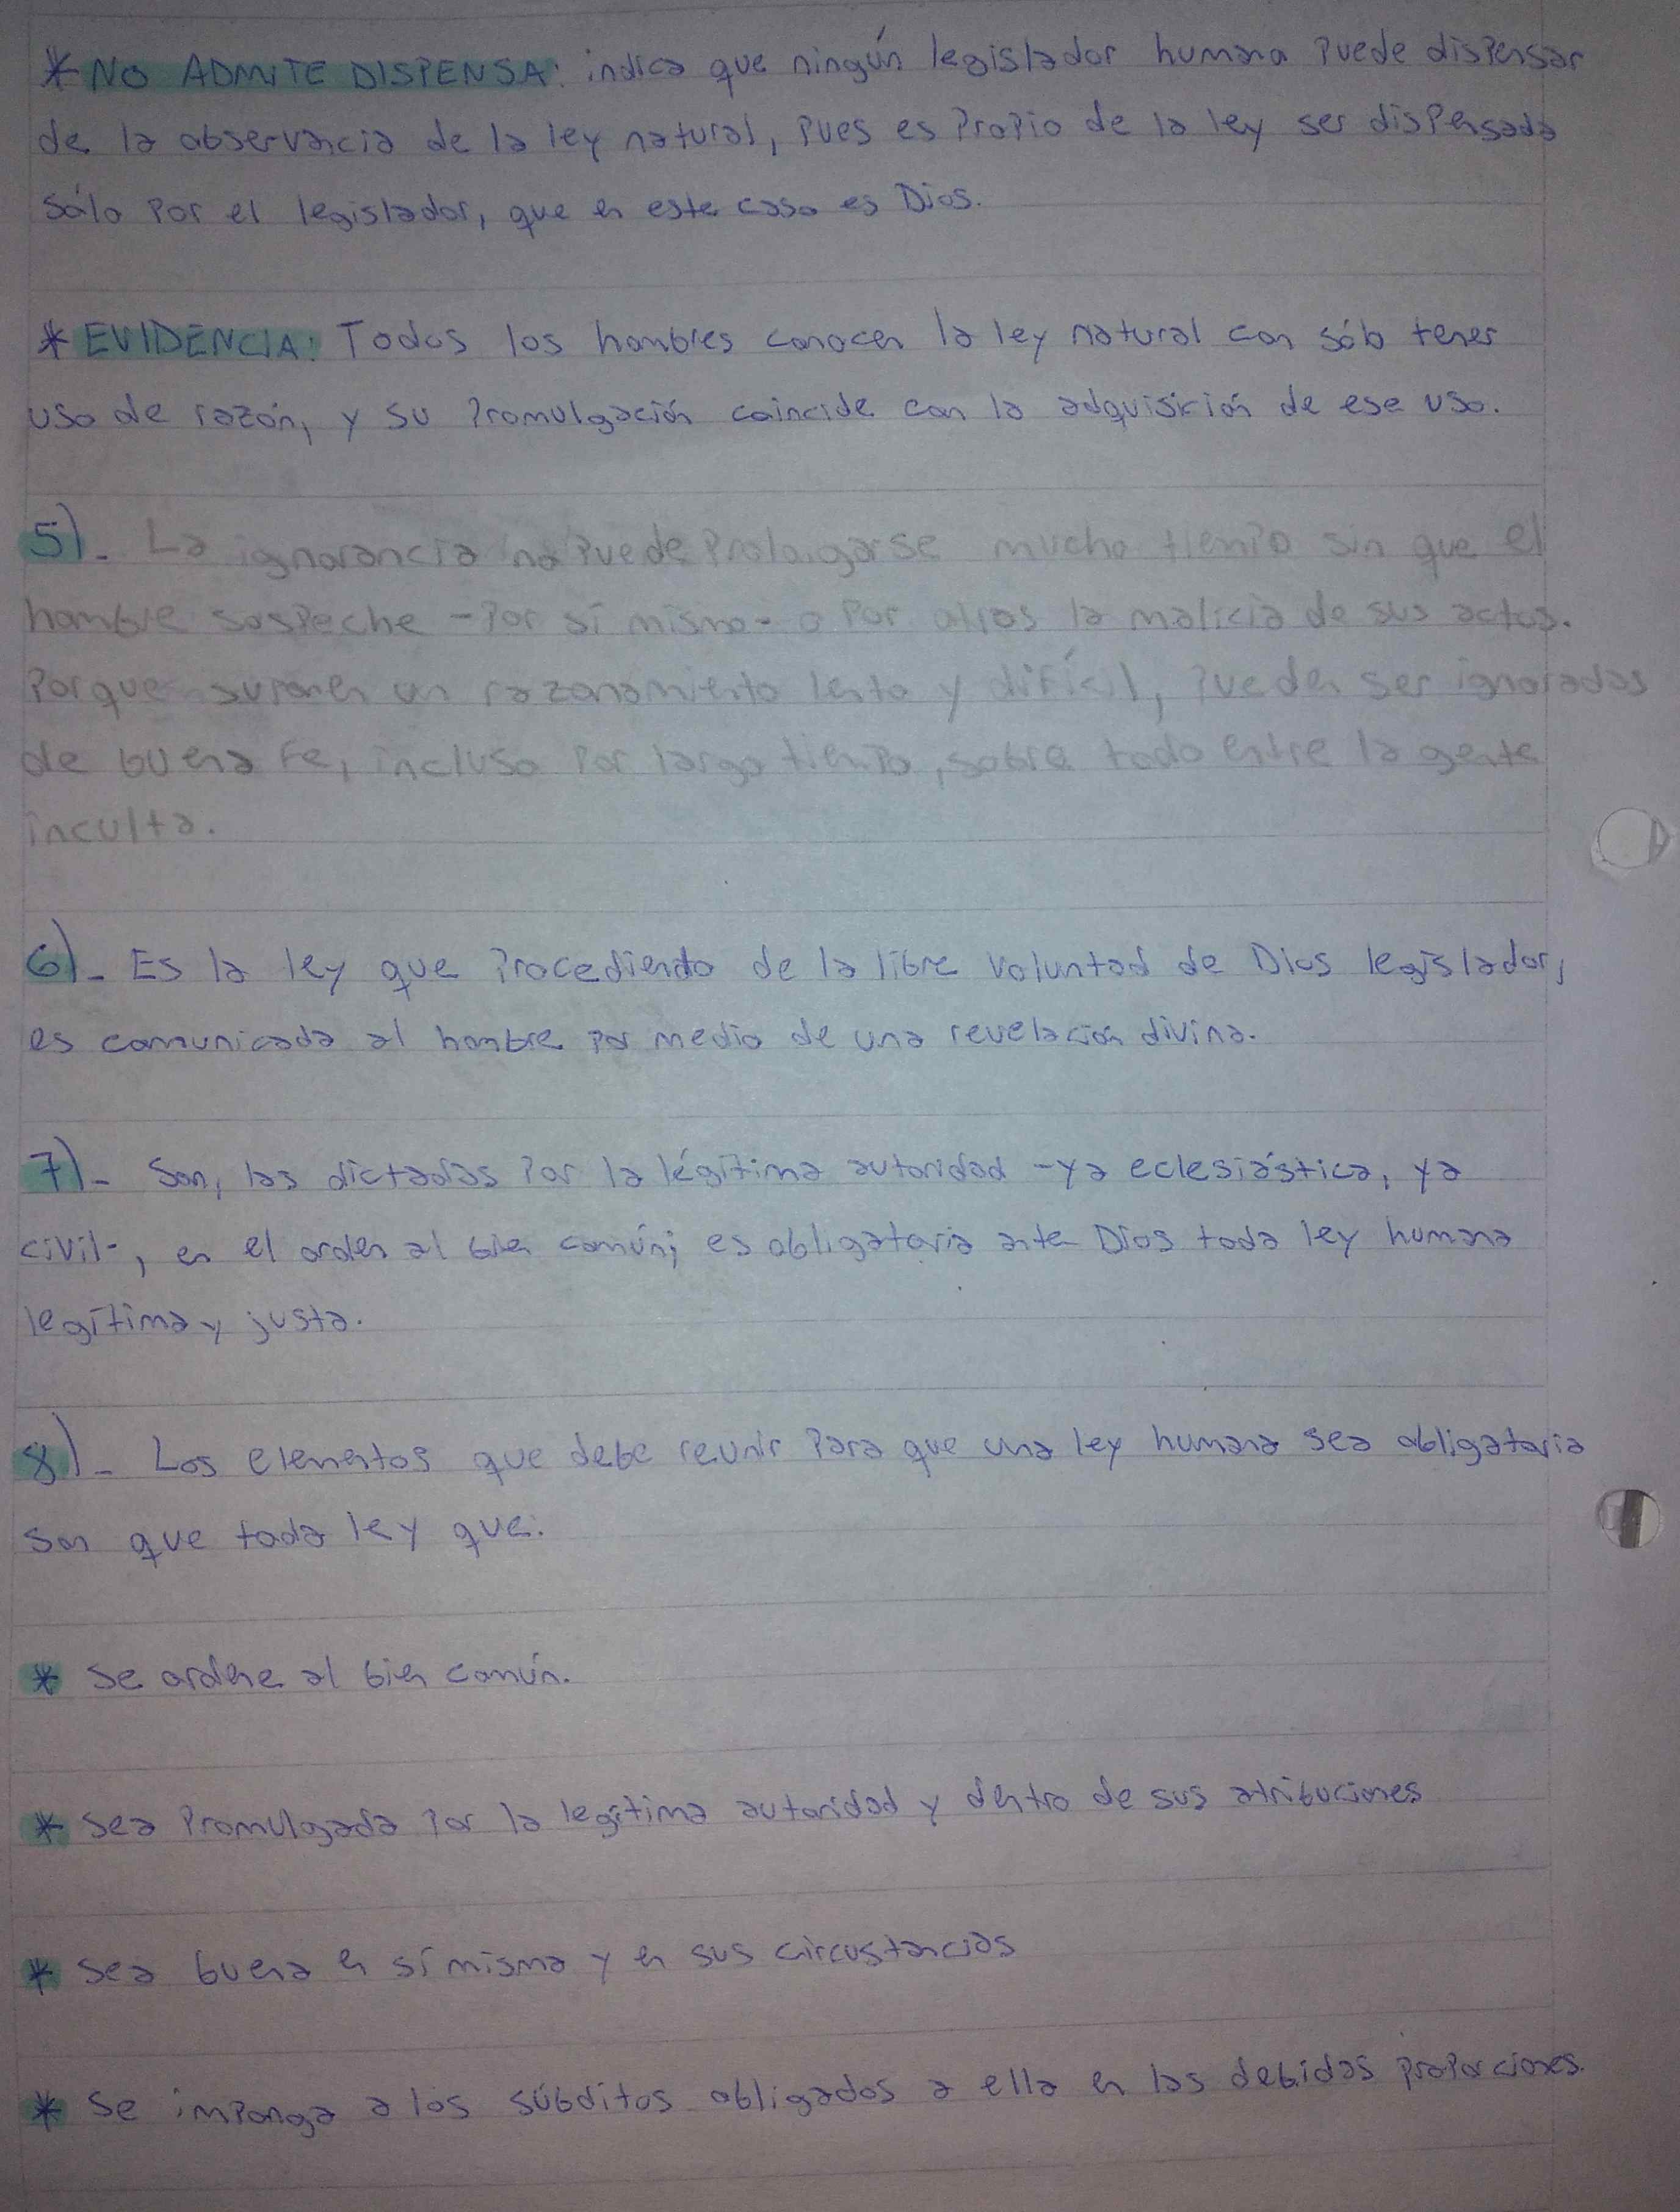 * NO ADMITE DISPENSA: indica que ningún legislador humana puede dispensar
de la observancia de la ley natural, pues es propio de la ley ser dispensada
sólo por el legislador, que en este caso es Dios.
* EVIDENCIA: Todos los hombres conocen la ley natural con sólo tener
uso de razón, y su promulgación coincide con la adquisición de ese uso.
5).- La ignorancia no puede prolongarse mucho tiempo sin que el
hombre sospeche -por sí mismo- o por otros la malicia de sus actos.
Porque suponen un razonamiento lento y difícil, pueden ser ignorados
de buena fe, incluso por largo tiempo, sobre todo entre la gente
inculta.
6).- Es la ley que procediendo de la libre voluntad de Dios legislador,
es comunicada al hombre por medio de una revelación divina.
7).- Son, las dictadas por la légitima autoridad -ya eclesiástica, ya
civil-, en el orden al bien común; es obligatoria ante Dios toda ley humana
legítima y justa.
8).- Los elementos que debe reunir para que una ley humana sea obligatoria
son que toda ley que:
* Se ordene al bien común.
* Sea promulgada por la legítima autoridad y dentro de sus atribuciones
* Sea buena en sí misma y en sus circustancias
* Se imponga a los súbditos obligados a ella en las debidas proporciones.